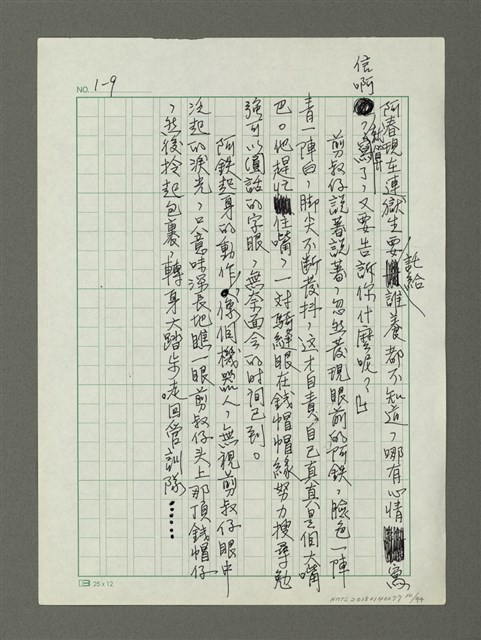 NO. 1-9
阿春現在連獄生要託給誰養都不知道，哪有心情寫
信啊，就算寫了，又要告訴你什麼呢？」
剪叔仔說著說著，忽然發現眼前的阿鉄，臉色一陣
青一陣白，脚尖不断發抖，这才自責自己真真是個大嘴
巴。他趕忙住嘴，一对騎縫眼在錢帽帽緣努力搜尋勉
強可以演話的字眼，無奈面会的时间已到。
阿鉄起身的動作，像個機器人，無視剪叔仔眼中
泛起的淚光，只意味深長地瞧一眼剪叔仔头上那頂錢帽仔
，然後拎起包裹，轉身大踏步走回營訓隊……
25x12